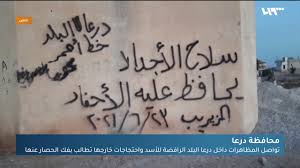 خاص
درعا البلد
خط أحمر
سلاح الأجداد
يحافظ عليه الأحفاد
محافظة درعا
تواصل المظاهرات داخل درعا البلد الرافضة للأسد واحتجاجات خارجها تطالب بفك الحصار عنها